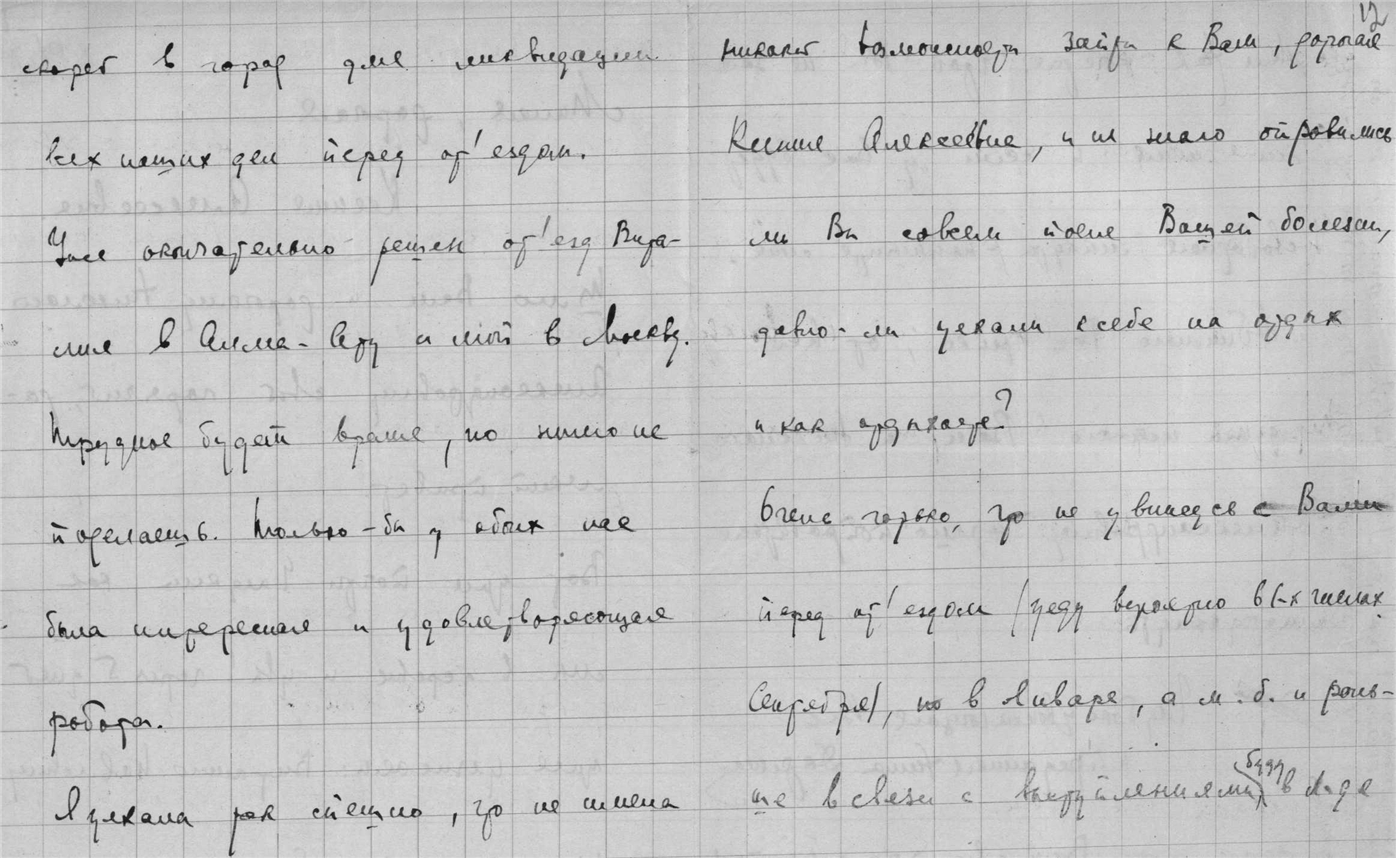 скорее в город для ликвидации
всех наших дел перед от'ездом.
Уже окончательно решен от'езд Вита-
лия в Алма-Ату и мой в Москву.
Трудное будет время, но ничего не
поделаешь. Только-бы у обоих нас
была интересная и удовлетворяющая
работа.
Я уехала так спешно, что не имела
12
никакой возможности зайти к Вам, дорогая
Ксения Алексеевна, и не знаю оправились
ли Вы совсем после Вашей болезни,
давно-ли уехали к себе на отдых
и как отдыхаете?
Очень горько, что не увижусь с Вами
перед от'ездом (уеду вероятно в 1-х числах
Сентября), но в Январе, а м.б. и рань-
ше в связи с выступлениями буду в Л-де